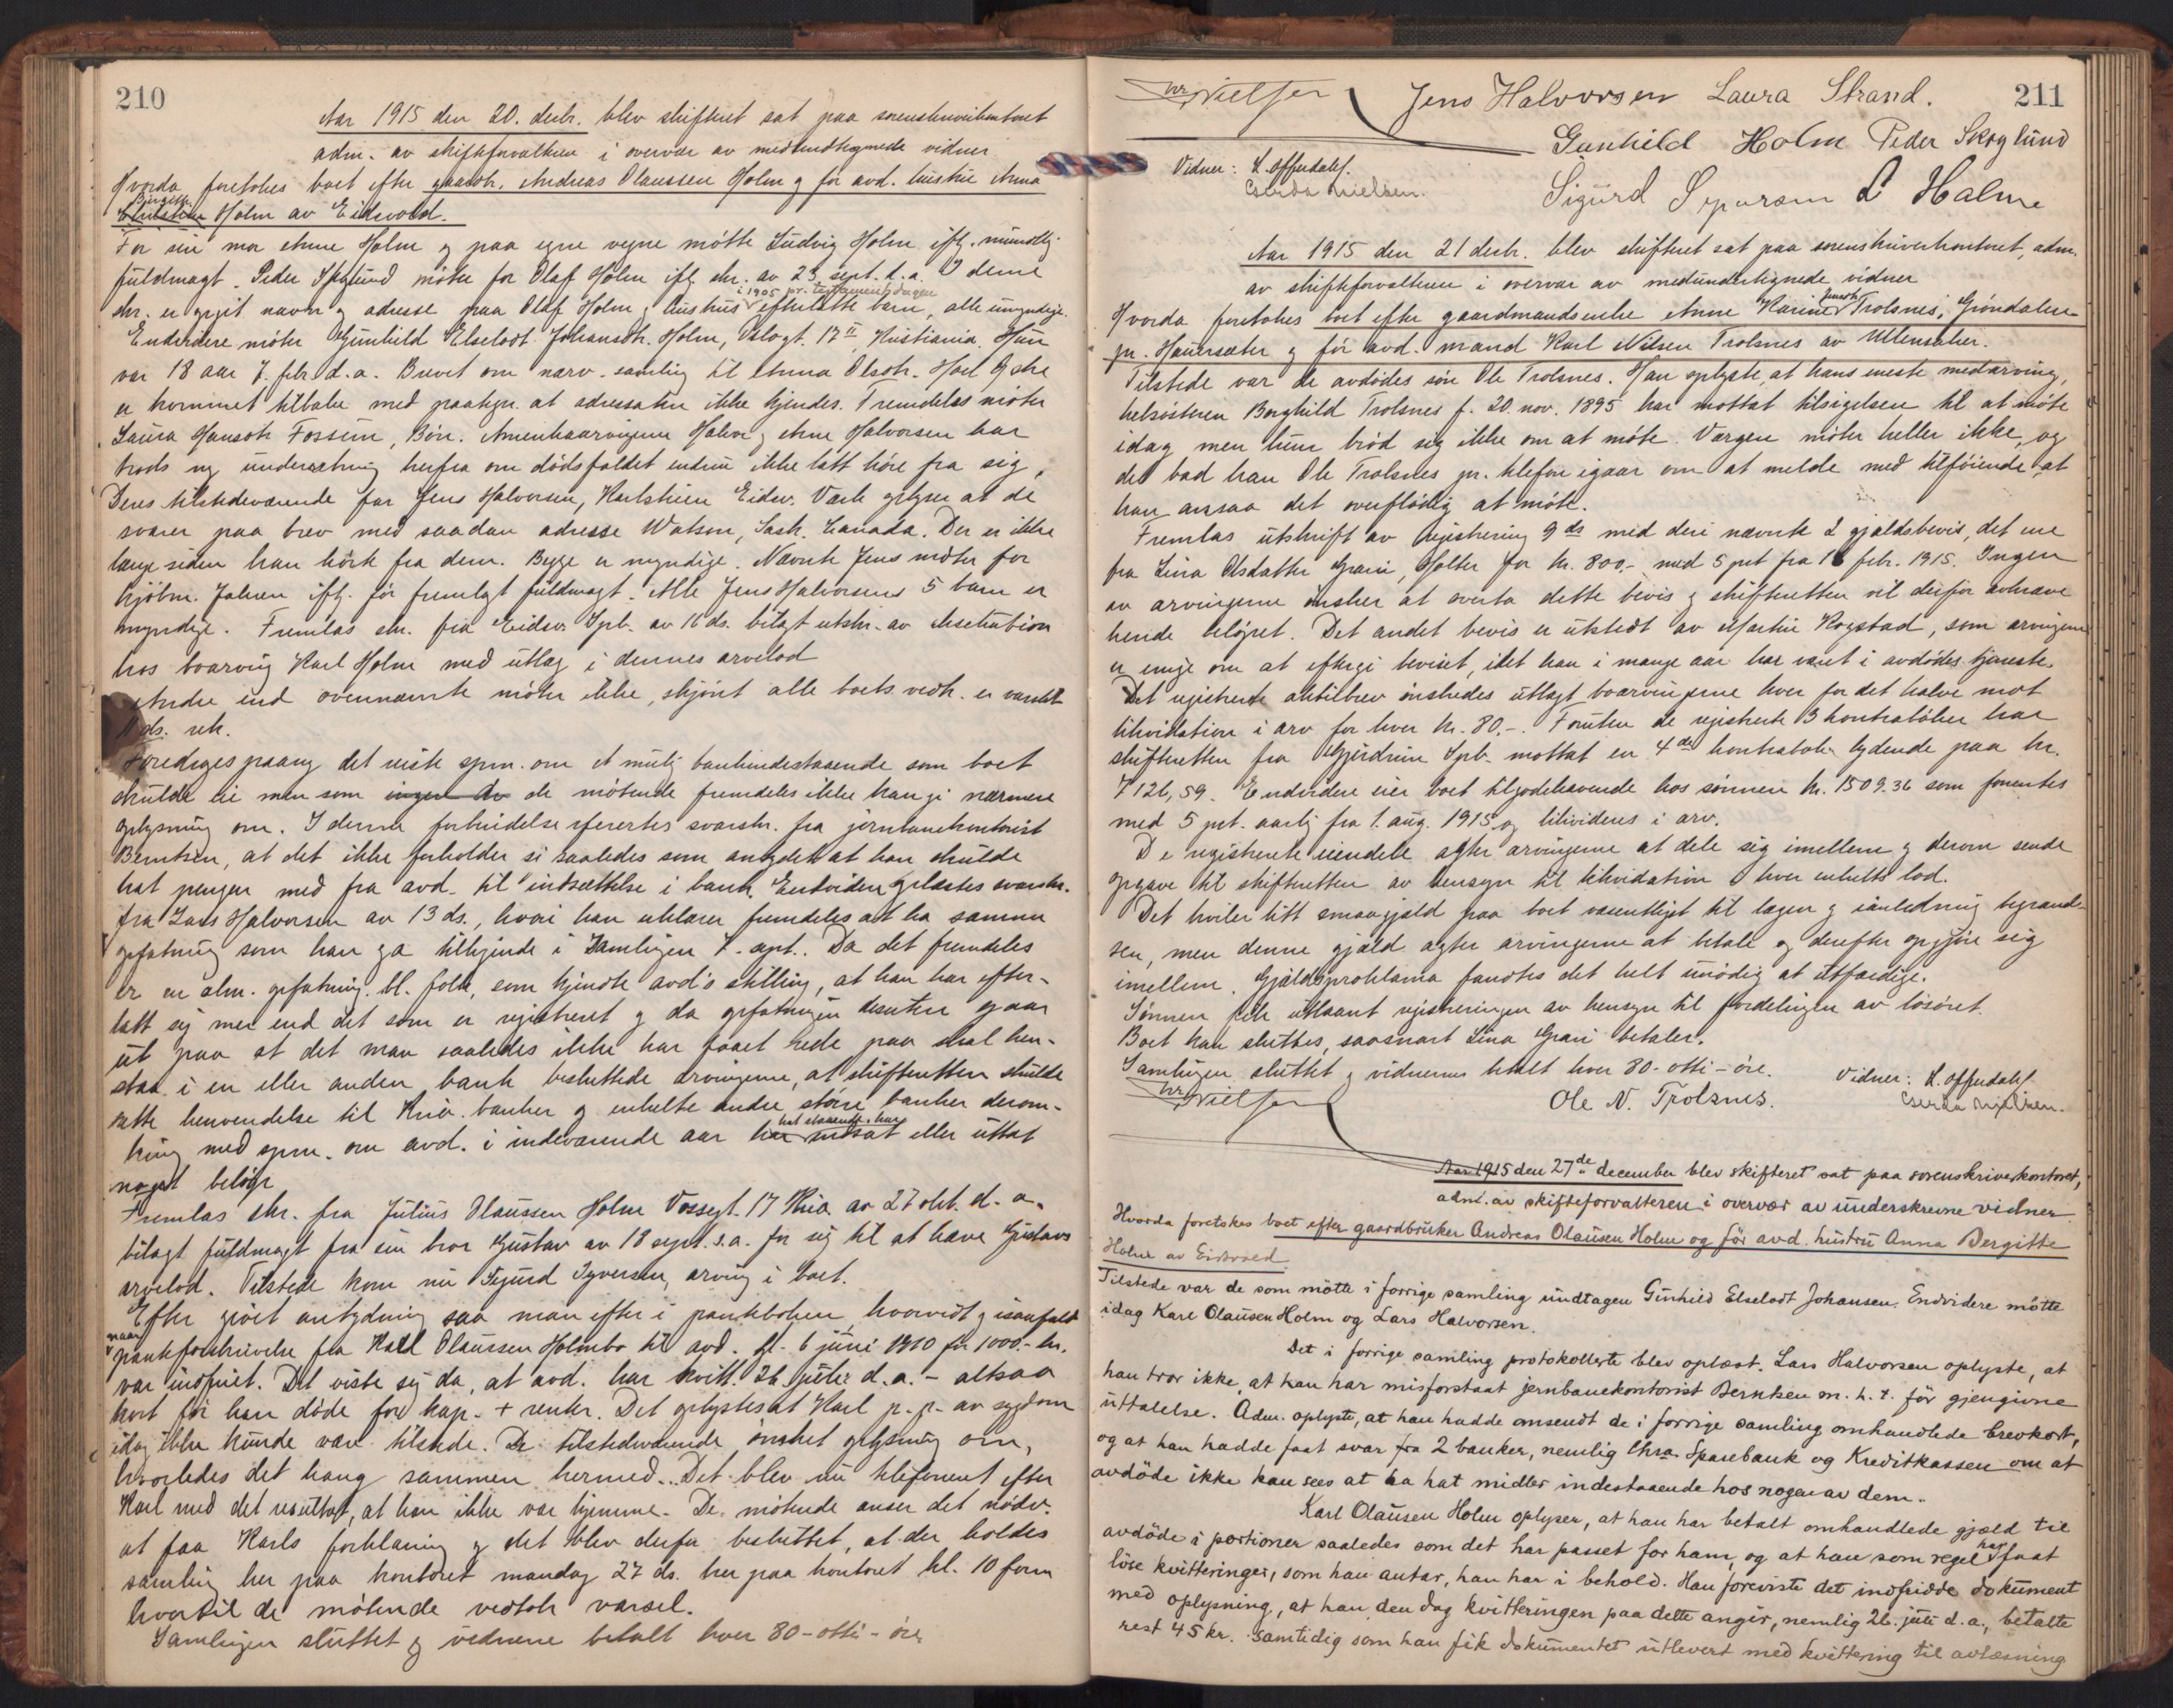 210
Aar 1915 den 20. decbr. blev skifteret sat paa sorenskriverkontoret
adm. av skifteforvalteren i overvær av medundtegnede vidner
Hvorda foretokes boet efter gaardbr. Andreas Olaussen Holm og før avd. hustru Anna
Birgitte
Holm av Eidsvold.
For sin mor Anne Holm og paa egne vegne møtte Ludvig Holm iflg. mundtlig
fuldmagt. Peder Skoglund møter for Olaf Holm iflg. skr. av 23. sept. d.a. I denne
i 1905 pr. testamentsdagen
skr. er opgit navn og adresse paa Olaf Holm og hustrus efterlatte barn, alle umyndige.
Endvidere møter Gunhild Elselodt Johansdtr. Holm, Oslogt. 17 II, Kristiania. Hun
var 18 aar 7. febr. d.a. Brevet om nærv. samling til Anna Olsdtr. Holm
er kommet tilbake med paategn. at adressaten ikke kjendes. Fremdeles møter
Laura Hansdtr Fossum, Bøn. Amerikaarvingerne Halvor og Arne Halvorsen har
trods ny underretning herfra om dødsfaldet endnu ikke latt høre fra sig.
Deres tilstedeværende far Jens Halvorsen, Karlstuen Eidsv. Værk oplyser at de
svarer paa brev med saadan adresse Watson, Sask. Canada. Der er ikke
længe siden han hørte fra dem. Begge er myndige. Nævnte Jens møter for
iflg. før fremlagt fuldmagt. Alle Jens Halvorsens 5 barn er
myndige. Fremlas skr. fra Eidsv. Spb. av 16 ds. bilagt utskr. av Eksekution
hos boarving Karl Holm med utlæg i dennes arvelod
Andre end ovennævnte møter ikke, skjønt alle boets vedk. er varslet
ds. rek.
Foredrages paany det reiste spm. om et mulig bankindestaaende som boet
skulde eie men som ingen av de møtende fremdeles ikke kan gi nærmere
oplysning om. I denne forbindelse referertes svarskr. fra jernbanekontorist
Berntsen, at det ikke forholder si saaledes som antydet at han skulde
hat penger med fra avd. til indsættelse i bank. Endvidere oplæstes svarskr.
fra Lars Halvorsen av 13 ds., hvori han erklærer fremdeles at ha samme
opfatning som han ga tilkjende i samlingen 7. sept. Da det fremdeles
er en alm. opfatning bl. folk, som kjendte avd's stilling, at han har efter-
latt sig mer end det som er registreret og da opfatningen desuten gaar
ut paa at det man saaledes ikke har faaet rede paa skal hen-
staa i en eller anden bank besluttede arvingerne, at skifteretten skulde
rette henvendelse til Kria. banker og enkelte andre større banker derom-
hat staaende, har
kring med spm. om avd. i indeværende aar har indsat eller uttat
noget beløp
Fremlas skr. fra Julius Olaussen Holm Vossegt. 17 Kria av 27 okt. d. a.
bilagt fuldmagt fra sin bror Gustav av 18 sept. s.a. for sig til at hæve Gustavs
arvelod. Tilstede kom nu Sigurd Syversen, arving i boet.
Efter given antydning saa man efter i panteboken hvorvidt og isaafald
naar
pantforskrivelse fra Karl Olaussen Holmbo til avd. gl. 6 juni 1910 for 1000.- kr.
var indfriet. Det viste sig da, at avd. har kvitt. 26. juli d.a. - altsaa
kort før han døde for kap. + renter. Det oplystes at Karl p.g.a. av sygdom
idag ikke kunde være tilstede. De tilstedeværende ønsket oplysning om,
hvorledes det hang sammen hermed. Det blev nu telefonert efter
Karl med det resultat, at han ikke var hjemme. De møtende anser det nødv.
at faa Karls forklaring og det blev derfor besluttet, at der holdes
samling her paa kontoret mandag 27 ds. her paa kontoret kl. 10 form
hvortil de møtende vedtok varsel.
Samlingen sluttet og vidnerne betalt hver 80-otti-øre
211
Nielsen Jens Halvorsen Laura Strand.
Gunhild Holm Peder Skoglund
Vidner: K. Offerdahl.
Gerda Nielsen.
Sigurd Syversen L Holm
Aar 1915 den 21 decbr. blev skifteret sat paa sorenskriverkontoret, adm.
av skifteforvalteren i overvær av medundertegnede vidner
Hvorda foretokes boet efter gaardmandsenke Anne Karine Trolsnes, Grøndalen
pr. Hauersæter og før avd. mand Karl Nilsen Trolsnes av Ullensaker.
Tilstede var de avdødes søn Ole Trolsnes. Han oplyste, at hans eneste medarving,
helsøsteren Borghild Trolsnes f. 20. nov. 1895 har mottat tilsigelsen til at møte
idag men hun brød sig ikke om at møte. Værgen møter heller ikke, og
det bad han Ole Trolsnes pr. telefon igaar om at melde med tilføiende at
han ansaa det overflødig at møte.
Fremlas utskrift av registrering 9 ds med deri nævnte 2 gjældsbevis, det ene
fra Lina Olsdatter Grøni, Holter for kr. 800,- med 5 pct fra 16 febr. 1915. Ingen
av arvingerne ønsker at overta dette bevis og skifteretten vil derfor avkræve
hende beløpet. Det andet bevis er utstedt av Martin Rogstad, som arvingerne
er enige om at eftergi beviset, idet han i mange aar har været i avdødes tjeneste.
Det registrerte aktiebrev ønskedes utlagt boarvingerne hver for det halve mot
likvidation i arv for hver kr. 80,-. Foruten de registrerte 3 kontrabøker har
skifteretten fra Gjerdrum Spb. mottat en 4de kontrabok lydende paa kr.
7126,59. Endvidere eier boet tilgodehavende hos sønnen kr. 1509.36 som forrentes
med 5 pct. aarlig fra 1. aug. 1915 og likvideres i arv.
De registrerte eiendele agter arvingerne at dele sig imellem og derom sende
opgave til skifteretten av hensyn til likvidation i hver enkelts lod.
Det hviler litt smaagjæld paa boet væsentligst til lægen og i anledning begravel-
sen, men denne gjæld agter arvingerne at betale og derefter opgjøre sig
imellem. Gjældsproklama fandtes det helt unødig at utfærdige.
Sønnen fik utlaant registreringen av hensyn til fordelingen av løsøret.
Boet kan sluttes, saasnart Lina Grøni betaler.
Samlingen sluttet og vidnerne betalt hver 80-otti-øre.
Nielsen Ole N. Trolsnes. Vidner: K. Offerdahl
Gerda Nielsen.
Aar 1915 den 27de december blev skifteret sat paa sorenskriverkontoret,
adm. av skifteforvalteren i overvær av underskrevne vidner
Hvorda foretokes boet efter gaardbruker Andreas Olausen Holm og før avd. hustru Anna Bergitte
Holm av Eidsvold
Tilstede var de som mötte i forrige samling undtagen Gunhild Elselodt Johansen. Endvidere mötte
idag Karl Olausen Holm og Lars Halvorsen.
Det i forrige samling protokollerte blev oplæst. Lars Halvorsen oplyste, at
han tror ikke, at han har misforstaat jernbanekontorist Berntsen m. h. t. för gjengivne
uttalelse. Adm. oplyste, at han hadde omsendt de i forrige samling omhandlede brevkort,
og at han hadde faat svar fra 2 banker, nemlig Chra. Sparebank og Kreditkassen om at
avdöde ikke kan sees at ha hat midler indestaaende hos nogen av dem.
Karl Olausen Holm oplyser, at han har betalt omhandlede gjæld til
avdöde i portioner saaledes som det har passet for ham, og at han som regel har faat
löse kvitteringer, som han antar, han har i behold. Han foreviste det indfridde dokument
med oplysning, at han den dag kvitteringen paa dette angir, nemlig 26. juli d. a., betalte
rest 45 kr. samtidig som han fik dokumentet utlevert med kvittering til avlæsning